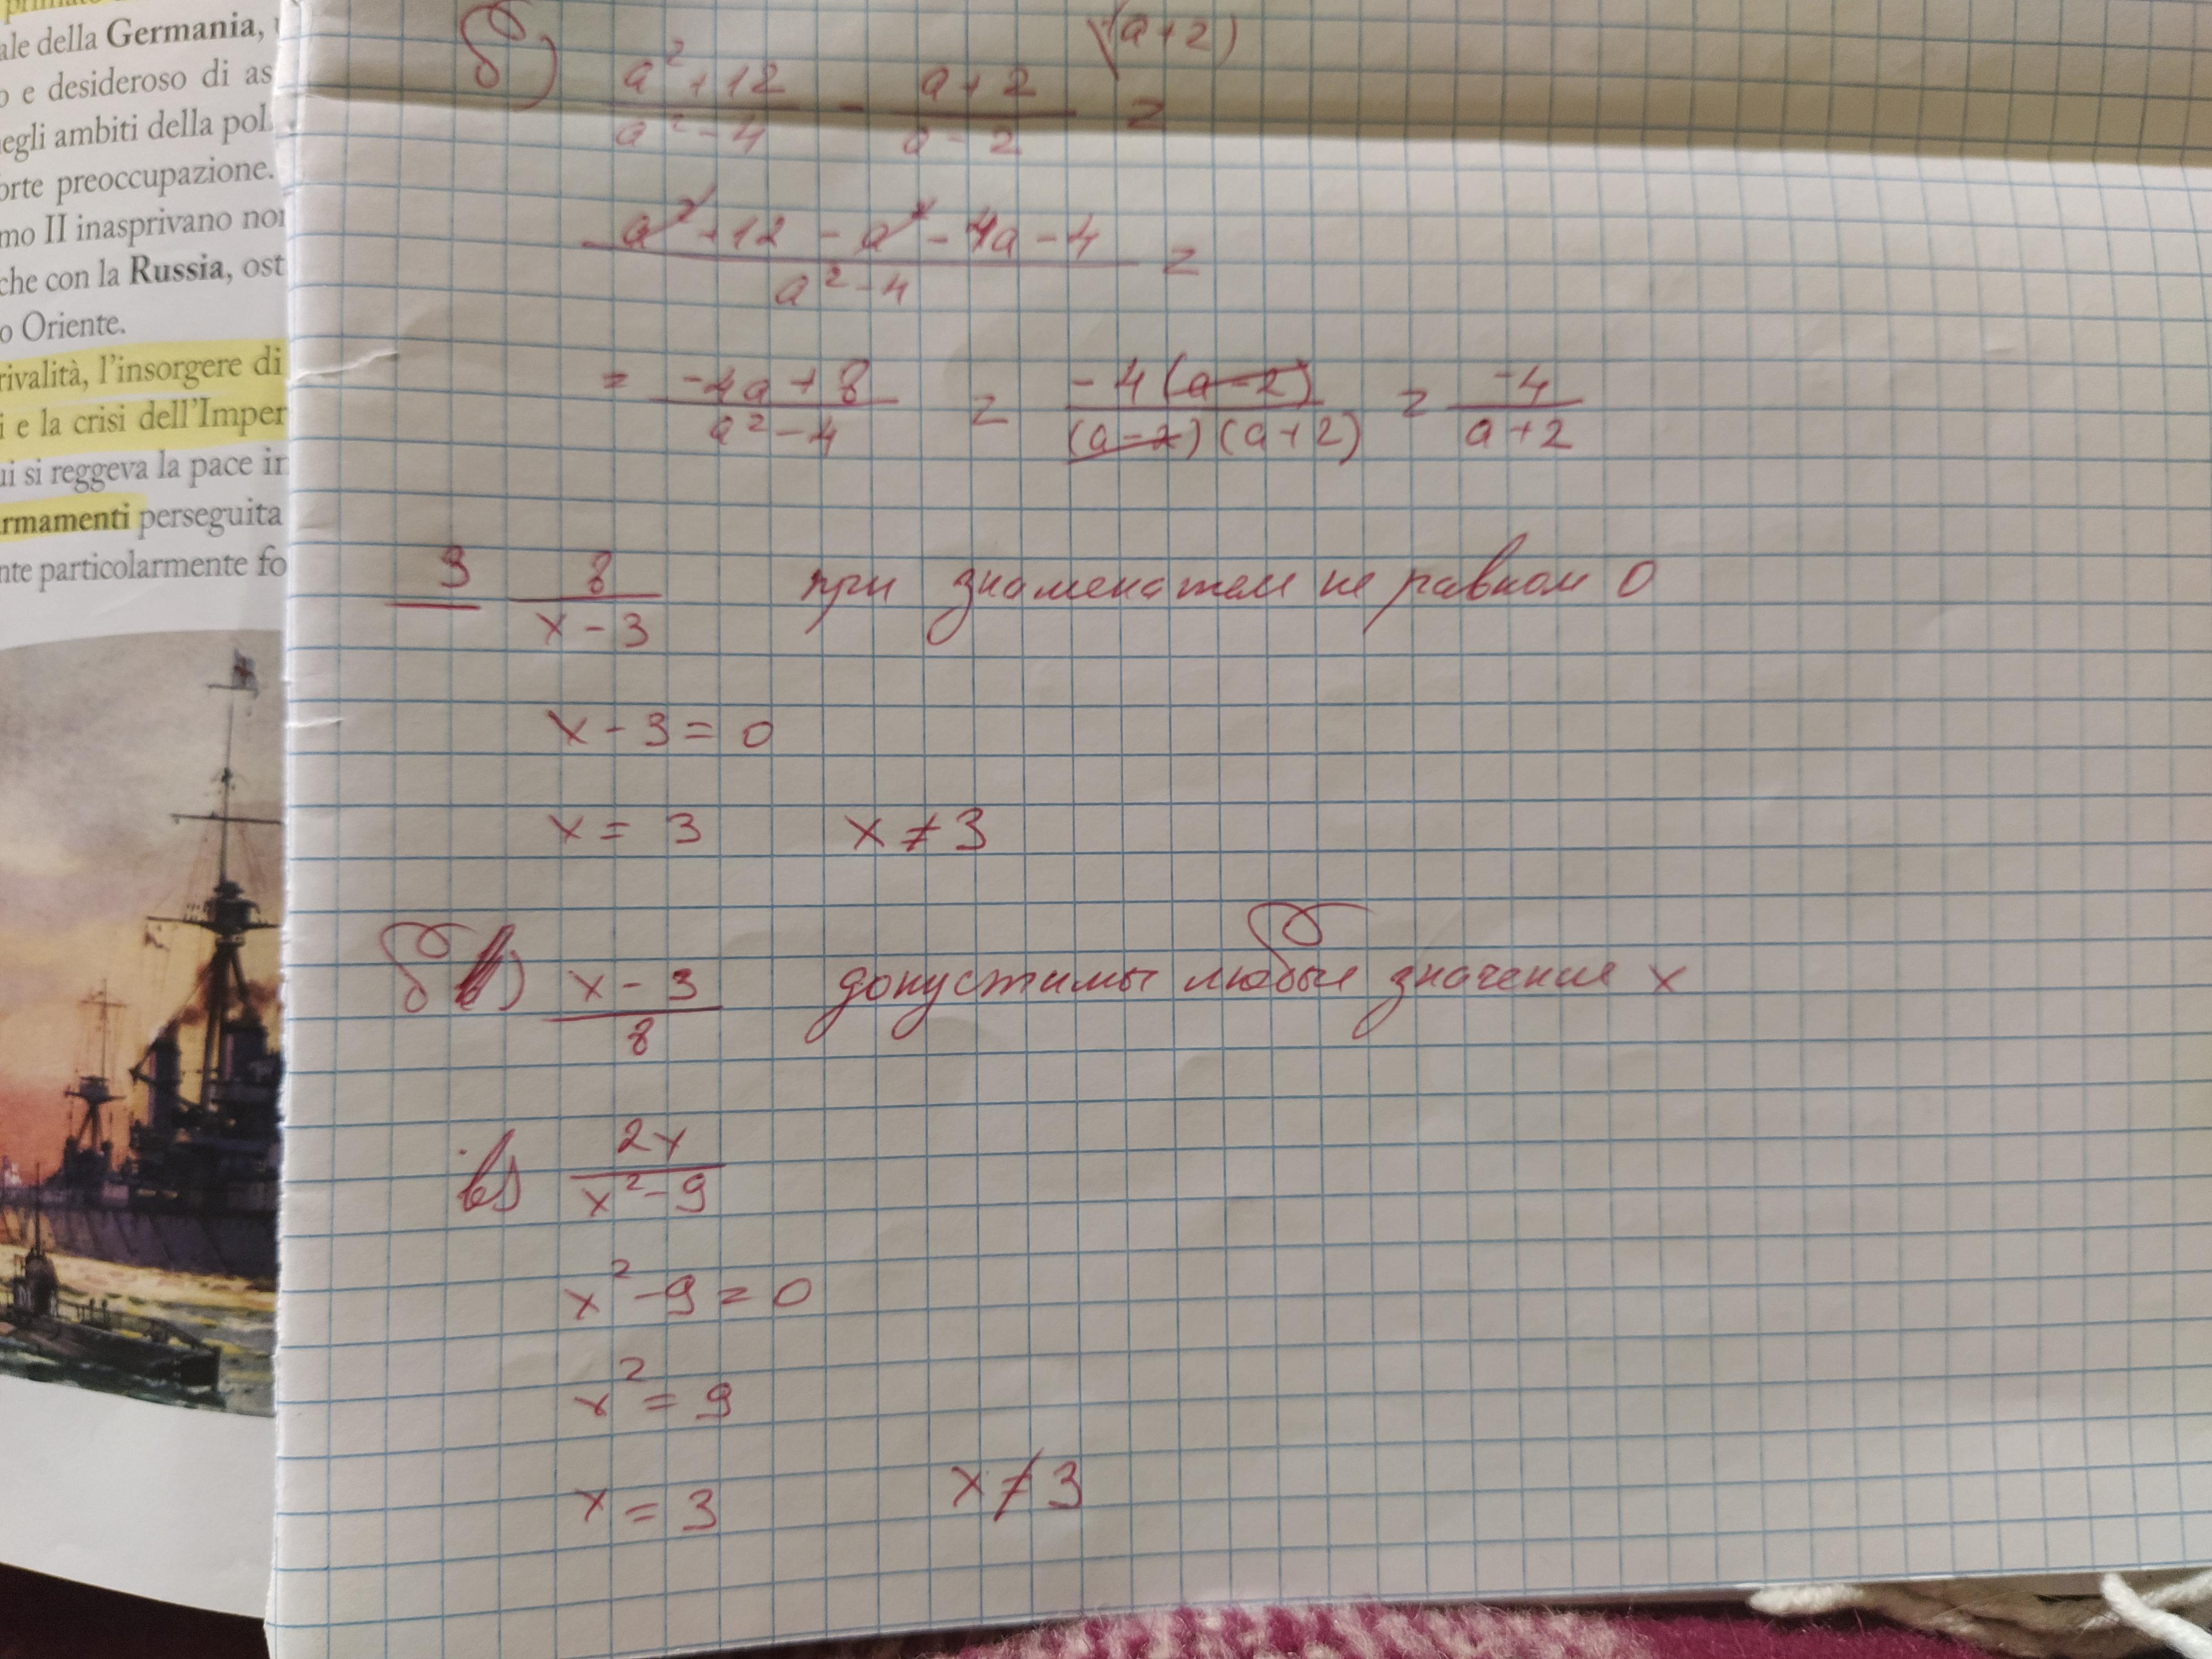 primato
ale della Germania,
o e desideroso di as
egli ambiti della pol
orte preoccupazione.
mo II inasprivano nor
che con la Russia, ost
o Oriente.
rivalità, l'insorgere di
i e la crisi dell'Imper
ui si reggeva la pace in
rmamenti perseguita
nte particolarmente fo
\(a+2)
б) a²+12 / a²-4 - a+2 / a-2 =
a²+12-a²-4a-4 / a²-4 =
= -4a+8 / a²-4 = -4(a-2) / (a-2)(a+2) = -4 / a+2
3 8 / x-3 при знаменателе не равном 0
x-3=0
x=3 x≠3
б) x-3 / 8 допустимы любые значения x
в) 2x / x²-9
x²-9=0
x²=9
x=3 x≠3